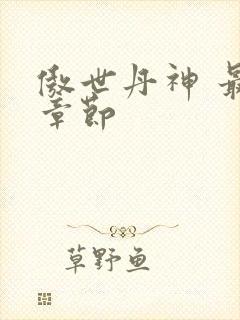 傲世丹神 最
章節
草野鱼